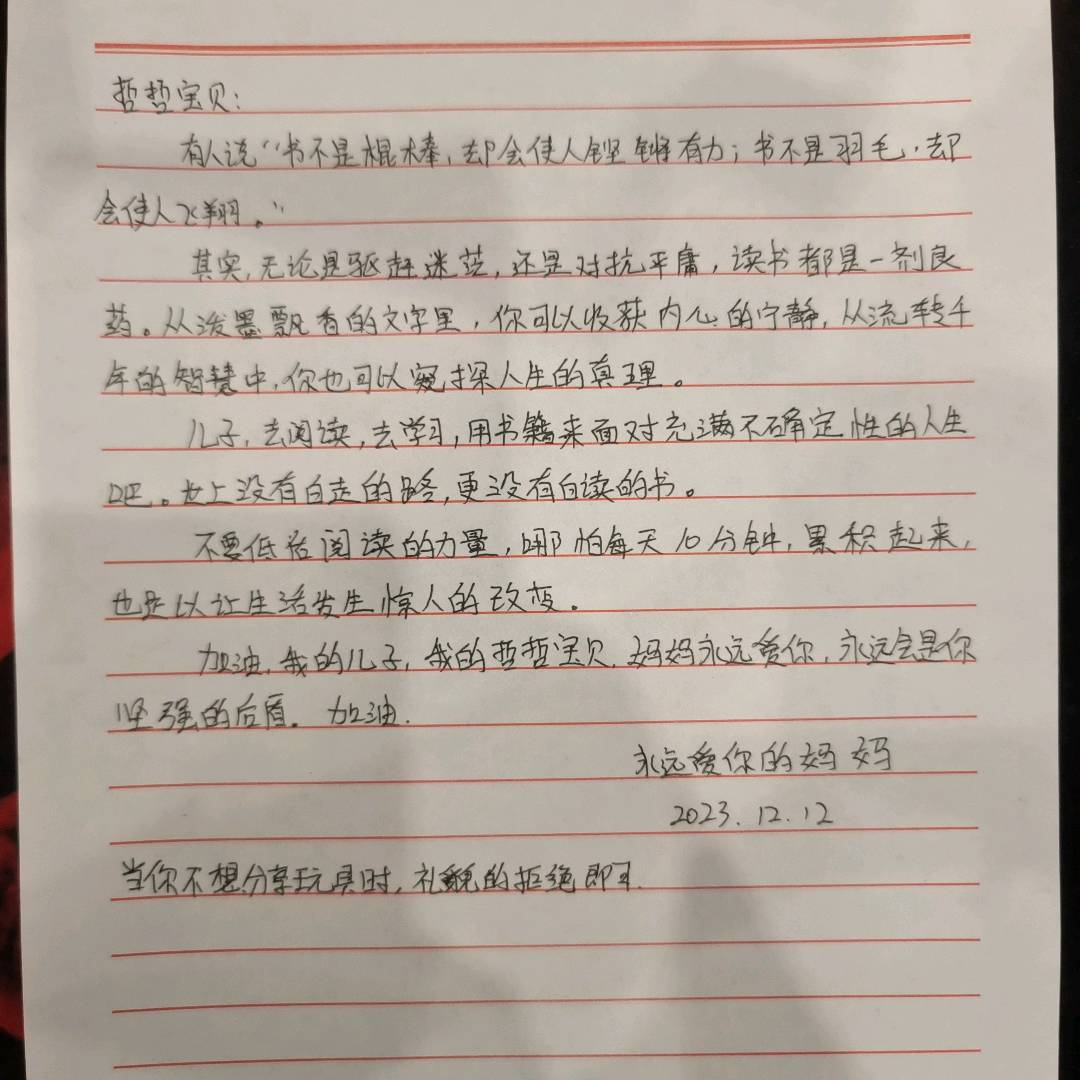 哲哲宝贝:
有人说“书不是棍棒,却会使人铿锵有力;书不是羽毛,却
会使人飞翔。”
其实,无论是驱赶迷茫,还是对抗平庸,读书都是一剂良
药。从泼墨飘香的文字里,你可以收获内心的宁静,从流转千
年的智慧中,你也可以窥探人生的真理。
儿子,去阅读,去学习,用书籍来面对充满不确定性的人生
吧。世上没有白走的路,更没有白读的书。
不要低估阅读的力量,哪怕每天10分钟,累积起来,
也足以让生活发生惊人的改变。
加油,我的儿子,我的哲哲宝贝,妈妈永远爱你,永远会是你
坚强的后盾。加油.
永远爱你的妈妈
2023.12.12
当你不想分享玩具时,礼貌的拒绝即可.